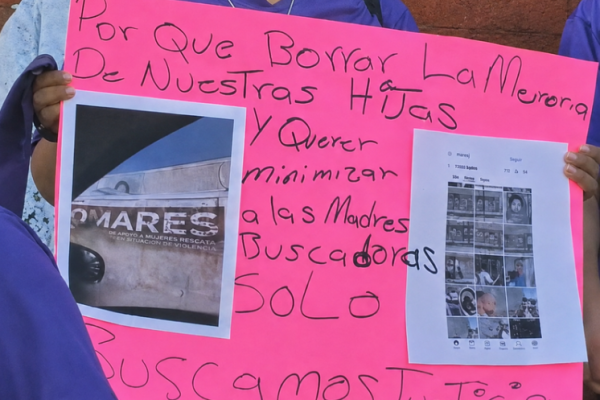 Por Que Borrar La Memoria
De Nuestras Hijas
Y Querer
minimizar
a las Madres
Buscadoras
SOLO
Buscamos Justicia
OMARES
DE APOYO A MUJERES RESCATA
EN SITUACIÓN DE VIOLENCIA
Seguir